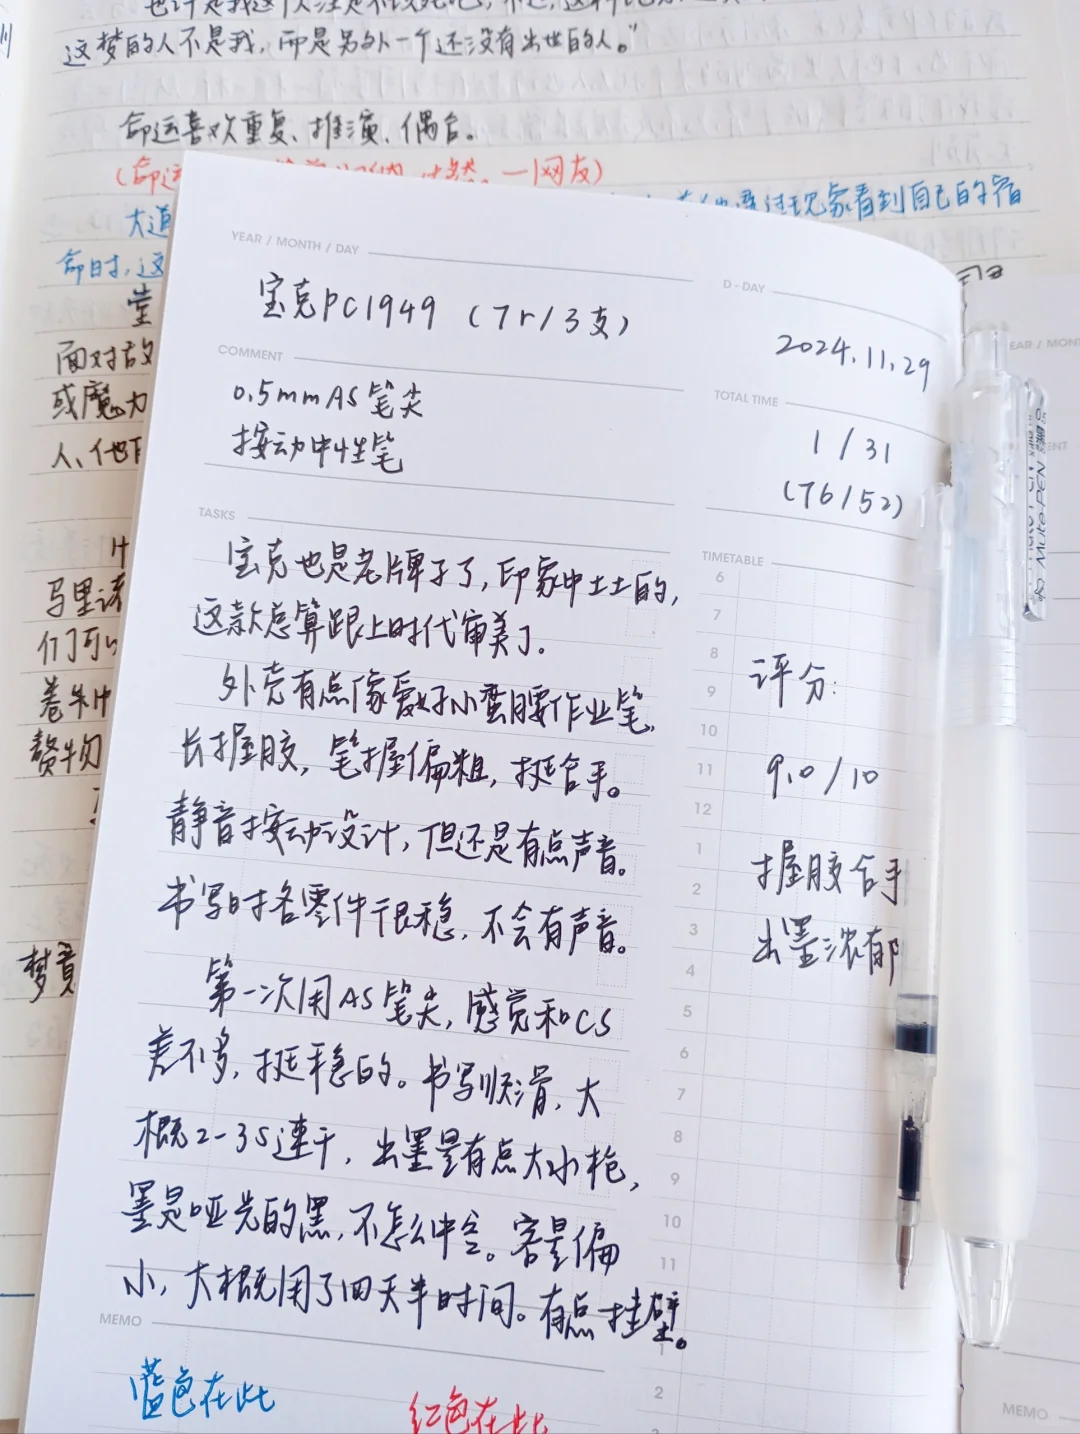 这梦的人不是我，而是另外一个还没有出世的人。”
命运喜欢重复、推演、偶合。
一网友）
现象看到自己的宿
大道
命时，这
面对敌
或魔力
YEAR / MONTH / DAY
宝克PC1949（7r/3支）
D-DAY
2024.11.29
COMMENT
0.5mmAS笔尖
按动中性笔
TOTAL TIME
1/31
(76/52)
TASKS
宝克也是老牌子了，印象中土土的，
这款总算跟上时代审美了.
外壳有点像爱好小蛮腰作业笔，
长握胶，笔握偏粗，挺合手。
静音按动设计，但还是有点声音。
书写时各零件很稳，不会有声音。
第一次用AS笔尖，感觉和CS
差不多，挺平稳的。书写顺滑、大
概2-3S速干，出墨量有点大水枪，
墨是哑光的黑，不怎么中含。容量偏
小，大概用了四天半时间。有点挂壁。
TIMETABLE
6
7
8
9
10
11
12
1
2
3
4
5
6
7
8
9
10
11
1
2
评分：
9.0/10
握胶合手
出墨浓郁
MEMO
蓝色在此
红色在此
Mute PEN
MEMO